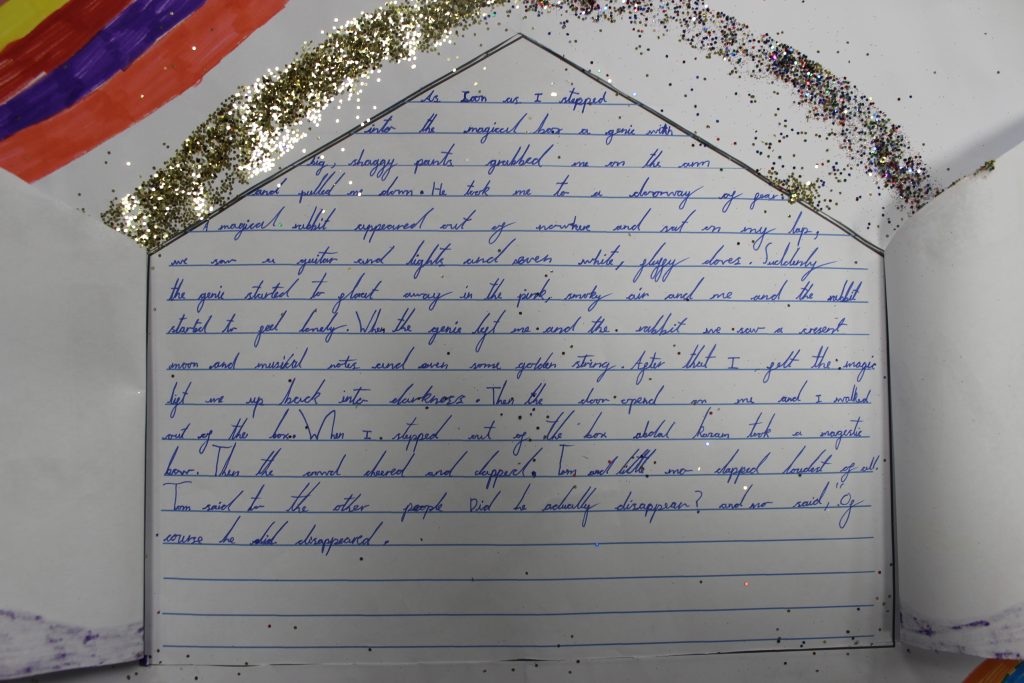 As soon as I stepped
into the magical box a genie with
big, shaggy pants grabbed me on the arm
and pulled me down. He took me to a doorway of gears.
A magical rabbit appeared out of nowhere and sat on my lap,
we saw a guitar and lights and even white, fluffy doves. Suddenly
the genie started to float away in the pink, smoky air and me and the rabbit
started to feel lonely. When the genie left me and the rabbit we saw a cresent
moon and musikal notes and even some golden string. After that I felt the magic
lift me up back into darkness. Then the door opend on me and I walked
out of the box. When I stepped out of the box abdal kazam took a magestic
bow. Then the crowd cheered and clapped. Tom and little mo clapped loudest of all.
Tom said to the other people Did he actually disappear? and mo said, "Of
course he did disappeared.